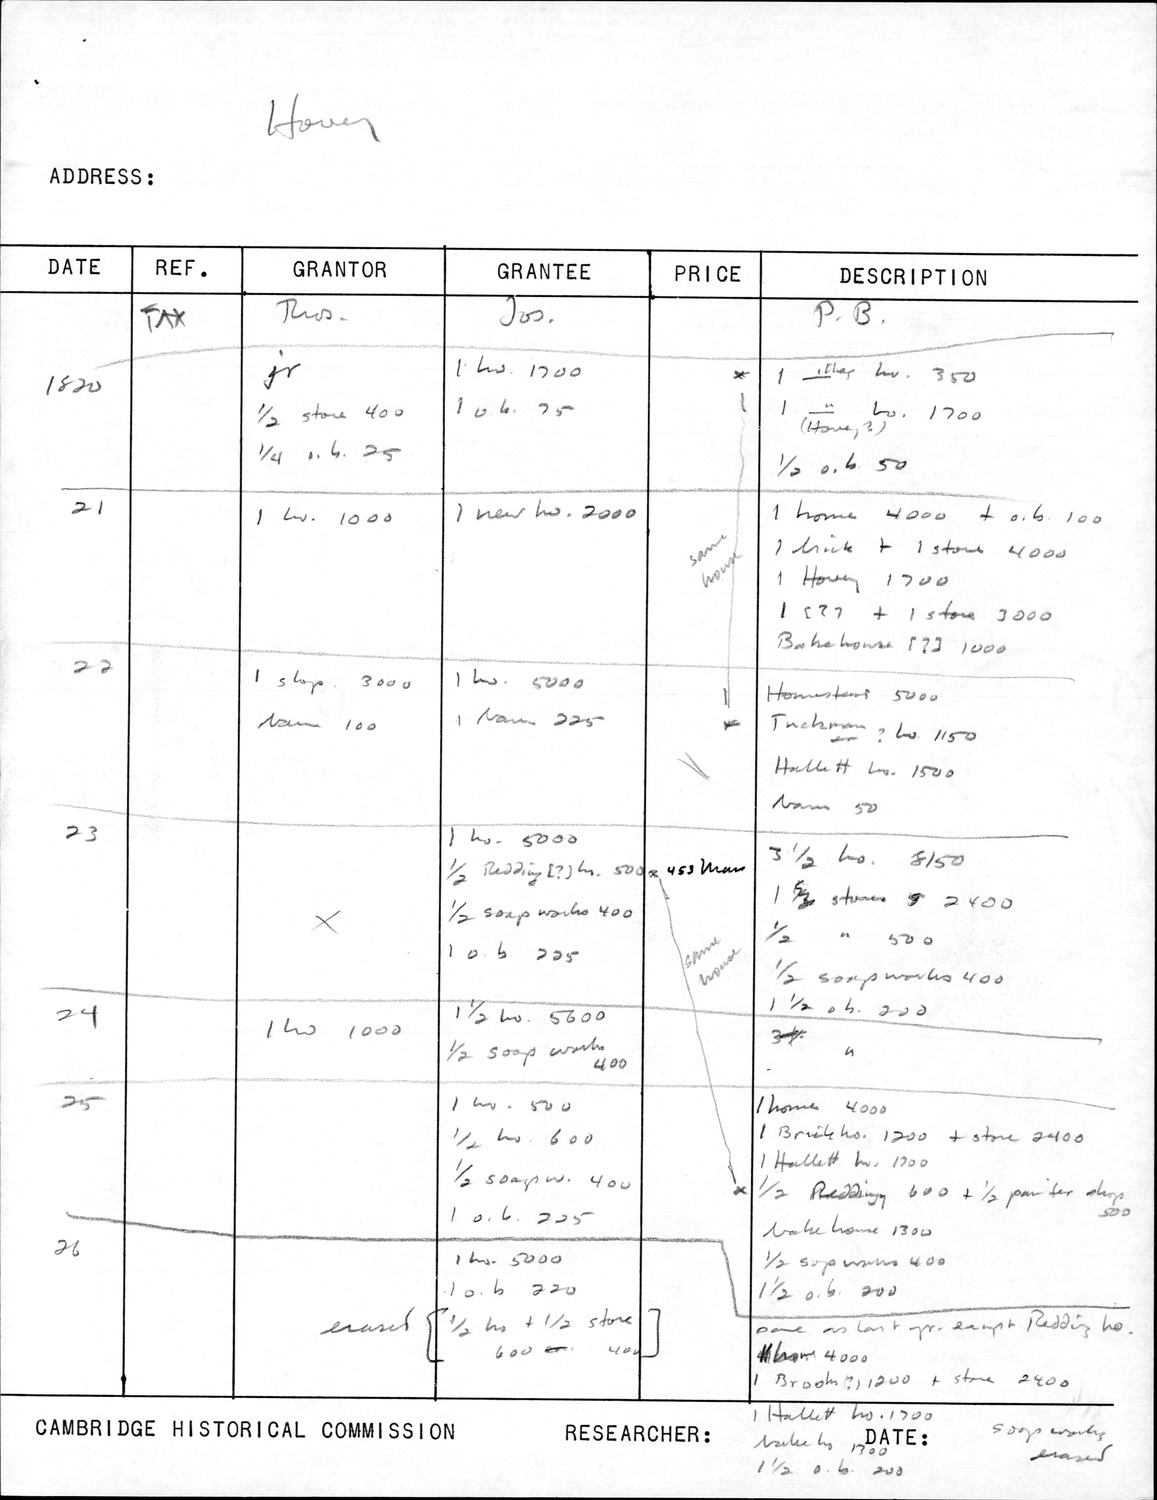 Hovey
ADDRESS:
DATE REF. GRANTOR GRANTEE PRICE DESCRIPTION
TAX Thos. Jos. P. B.
1820
jr
1/2 store 400
1/4 o.b. 25
1 ho. 1700
1 o.b. 75
1 ho. 350
1 " ho. 1700
(Hovey?)
1/2 o.b. 50
21
1 ho. 1000
1 new ho. 2000
same
house
1 home 4000 + o.b. 100
1 brick + 1 store 4000
1 Hovey 1700
1 [?] + 1 store 3000
Bakehouse [?] 1000
22
1 shop. 3000
barn 100
1 ho. 5000
1 barn 225
Homestead 5000
Tuckman
er ? ho. 1150
Hallett ho. 1500
barn 50
23
X
1 ho. 5000
1/2 Redding [?] ho. 500 x 453 Mass
1/2 soap works 400
1 o.b 225
same
house
3 1/2 ho. 8150
1 stores 2400
1/2 " 500
1/2 soap works 400
1 1/2 ob. 200
24
1 ho 1000
1 1/2 ho. 5600
1/2 soap works
400
"
25
1 ho. 500
1/2 ho. 600
1/2 soap w. 400
1 o.b. 225
1 home 4000
1 Brick ho. 1200 + store 2400
1 Hallett ho. 1700
x 1/2 Redding 600 + 1/2 painter shop
500
bake house 1300
1/2 soap works 400
1 1/2 o.b. 200
26
1 ho. 5000
1 o.b 220
erased [1/2 ho + 1/2 store
600 400]
same as last yr. except Redding ho.
4000
1 Brook(?) 1200 + store 2400
1 Hallett ho. 1700
bake ho 1300
1 1/2 o.b. 200
soap works
erased
CAMBRIDGE HISTORICAL COMMISSION RESEARCHER: DATE: